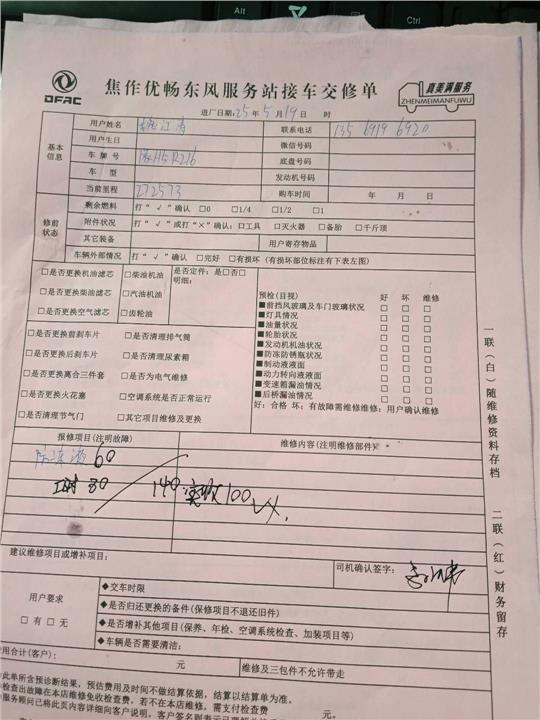 Alt
Ctrl
DFAC
焦作优畅东风服务站接车交修单
真美满服务
ZHENMEIMANFUWU
进厂日期:25年5月19日 时
基本信息
用户姓名
联系电话 135 6919 6920
用户生日
微信号码
车牌号 豫H5R216
底盘号码
车型
发动机号码
当前里程 272573
购车时间 年 月 日
修前状态
剩余燃料 打“√”确认 □0 □1/4 □1/2 □1
附件状况 打“√”或打“×”确认: □工具 □灭火器 □备胎 □千斤顶
其它装备
用户寄存物品
车辆外部情况 打“√”确认 □完好 □有损坏(有损坏部位标注有下表左图)
□是否更换机油滤芯 □柴油机油
□是否更换柴油滤芯 □汽油机油
□是否更换空气滤芯 □齿轮油
是否定件:是□否□
明细:
□是否更换前刹车片 □是否清理排气筒
□是否更换后刹车片 □是否清理尿素箱
□是否更换离合三件套 □是否为电气维修
□是否更换火花塞 □空调系统是否正常运行
□是否清理节气门 □其它项目维修及更换
预检(目视) 好 坏 维修
■前挡风玻璃及车门玻璃状况 □ □ □
■灯具情况 □ □ □
■油量状况 □ □ □
■轮胎状况 □ □ □
■发动机机油状况 □ □ □
■防冻防锈瓶状况 □ □ □
■制动液液面 □ □ □
■动力转向液液面 □ □ □
■变速箱漏油情况 □ □ □
■后桥漏油情况 □ □ □
好:合格 坏:有故障需维修维修:用户确认维修
报修项目(注明故障)
维修内容(注明维修部件)
防冻液 60
工时 80
140 实收100 VX.
建议维修项目或增补项目:
司机确认签字:
用户要求
□有□无
◆交车时限
◆是否归还更换的备件(保修项目不退还旧件)
◆是否增补其他项目(保养、年检、空调系统检查、加装项目等)
◆车辆是否需要清洁:
费用合计(客户): 元
维修及三包件不允许带走
此单所含预诊断结果,预估费用及时间不做结算依据,结算以结算单为准。
检查出故障在本店维修免收检查费,若不在本店维修,需支付检查费 元。
服务顾问已将此页内容详细向客户说明,客户签名
一联(白)随维修资料存档
二联(红)财务留存